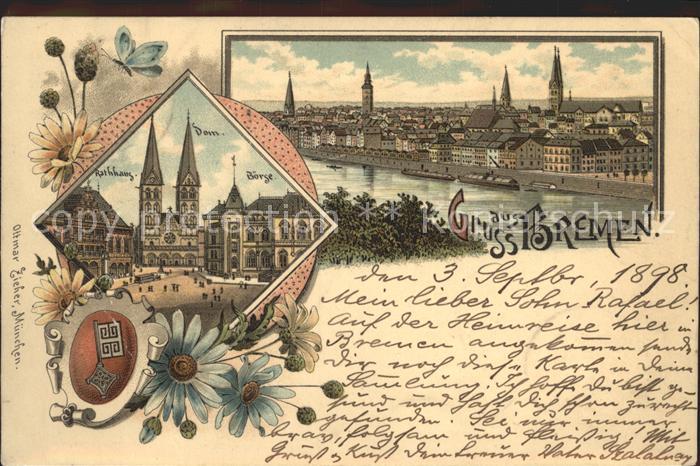 Dom.
Rathhaus.
Börse.
Gruss aus
BREMEN!
Ottmar Zieher, München.
den 3 Septbr, 1898.
Mein lieber Sohn Rafael!
Auf der Heimreise hier in
Bremen angekommen sende
Dir noch diese Karte in Deine
Samlung. Ich hoff du bist ge-
sund und hast Dich schon zurecht
gefunden. Sei nur immer
brav, folgsam und fleißig! Mit
Gruß & Kuß dein treuer Vater